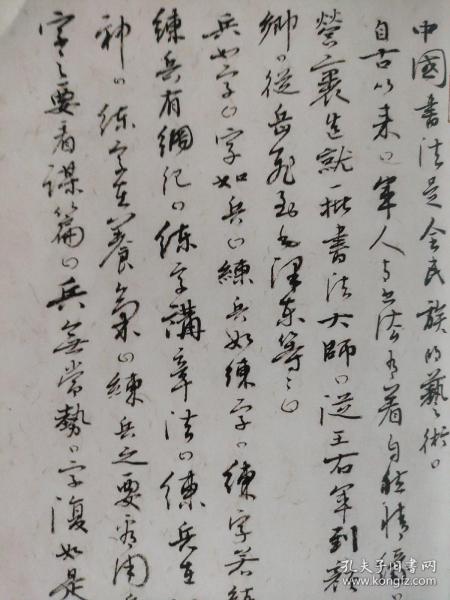 中國書法是全民族的藝術。
自古以来。軍人与书法有着自然情缘。
營裏造就一批書法大師。從王右軍到顔
卿。從岳飛到毛澤东等等。
兵如字。字如兵。練兵如練字。練字若練
練兵有綱纪。練字講章法。練兵在
神。练字在養氣。練兵之要看用兵
字之要看谋篇。兵無常勢。字復如是
孔夫子旧书网